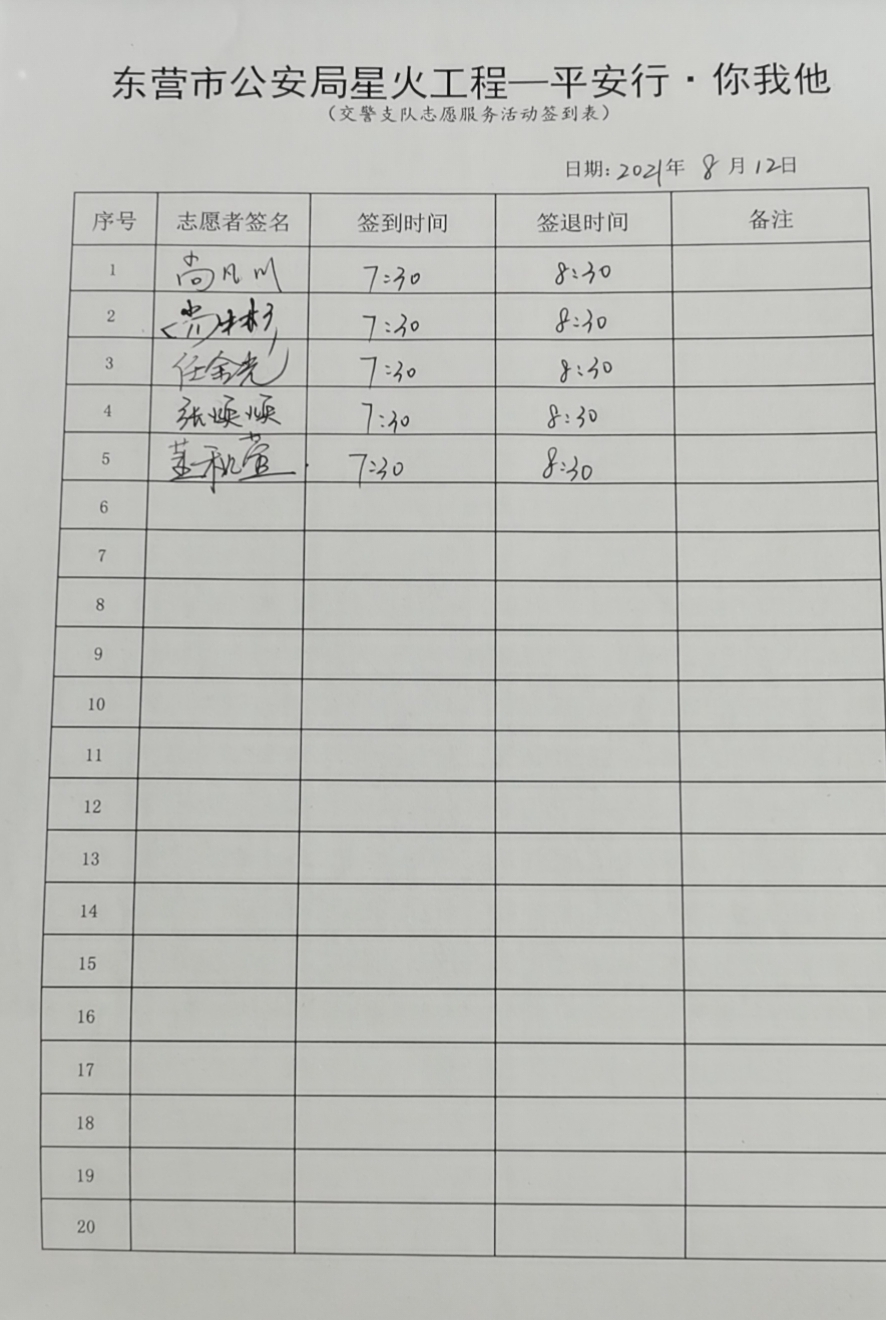 东营市公安局星火工程—平安行·你我他
（交警支队志愿服务活动签到表）
日期：2021年 8月12日
序号 志愿者签名 签到时间 签退时间 备注
1 尚凡川 7:30 8:30
2 7:30 8:30
3 任金亮 7:30 8:30
4 张顺顺 7:30 8:30
5 7:30 8:30
6
7
8
9
10
11
12
13
14
15
16
17
18
19
20